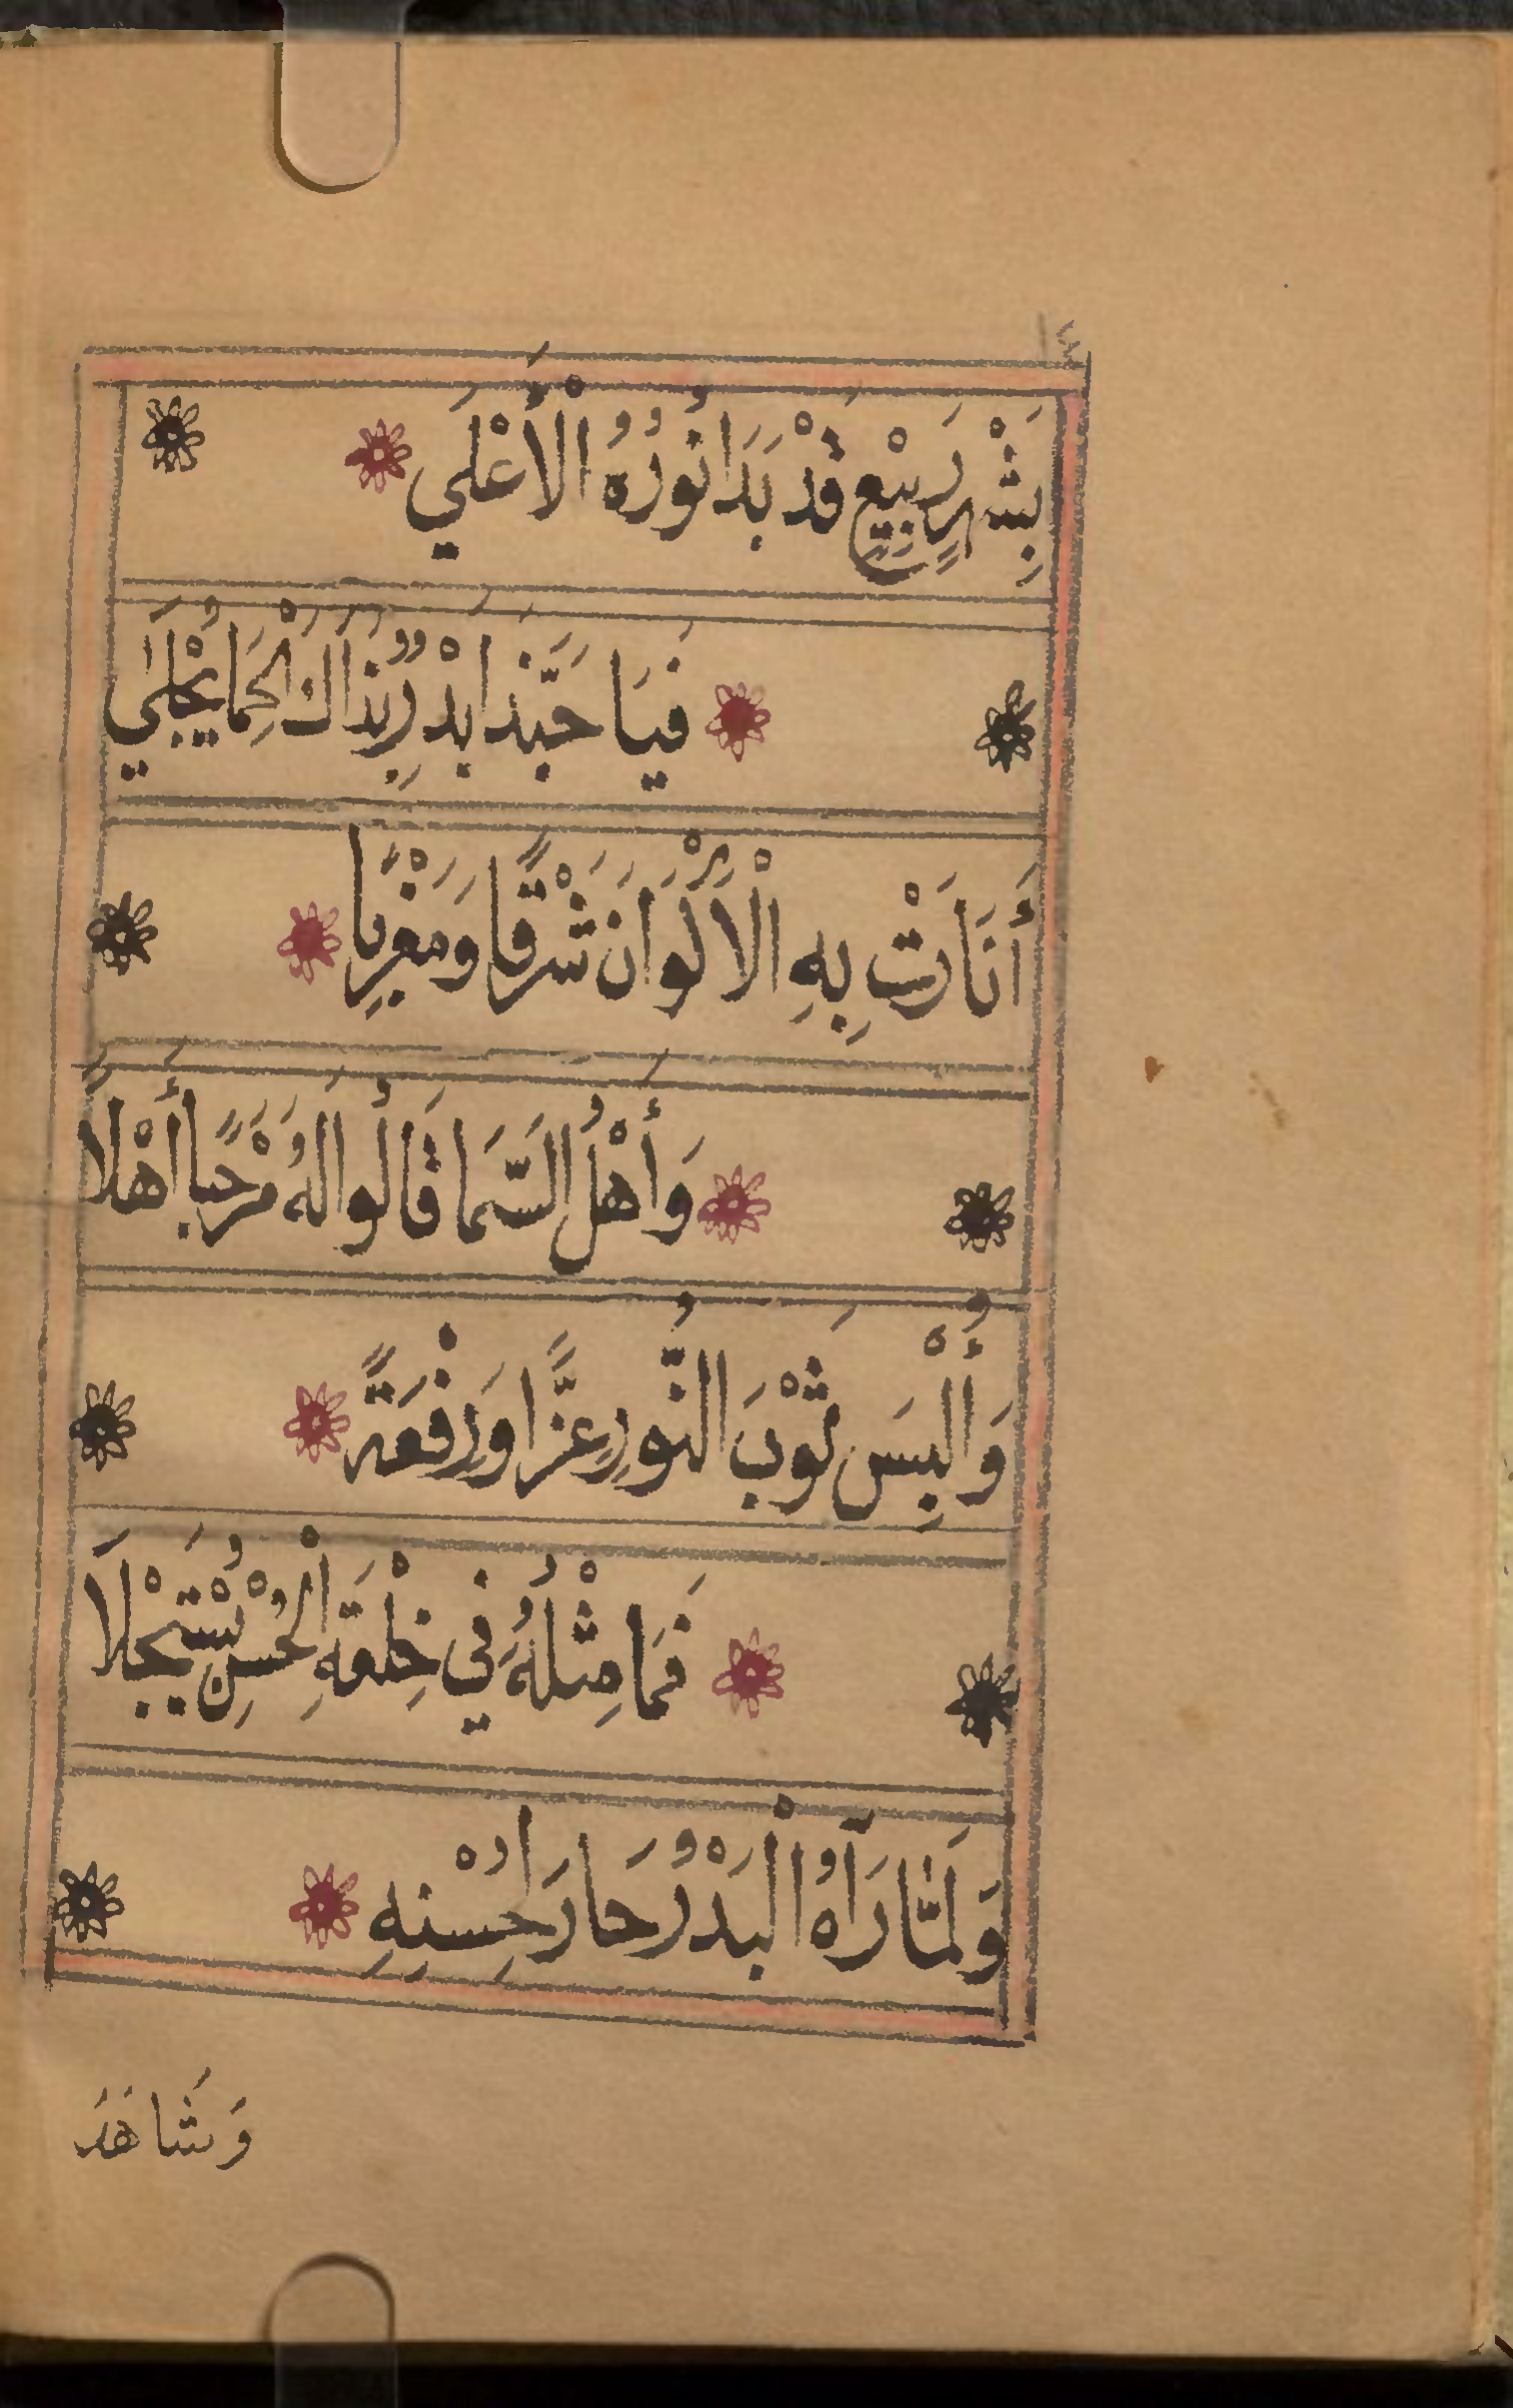 بِشَهْرِ رَبِيْعٍ قَدْ بَدَا نُورُهُ الْأَعْلَي
فَيَا حَبَّذَا بَدْرٌ بِذَاكَ الْحِمَا يُجْلَي
أَنَارَتْ بِهِ الْأَلْوَانَ شَرْقًا وَمَغْرِبًا
وَأَهْلُ السَّمَا قَالُوا لَهُ مَرْحَبًا أَهْلَا
وَأُلْبِسَ ثَوْبَ النُّورِ عِزًّا وَرِفْعَةً
فَمَا مِثْلُهُ فِي خِلْعَةِ الْحُسْنِ يُسْتَجْلَا
وَلَمَّا رَآهُ الْبَدْرُ حَارَ لِحُسْنِهِ
وَشَاهَدَ